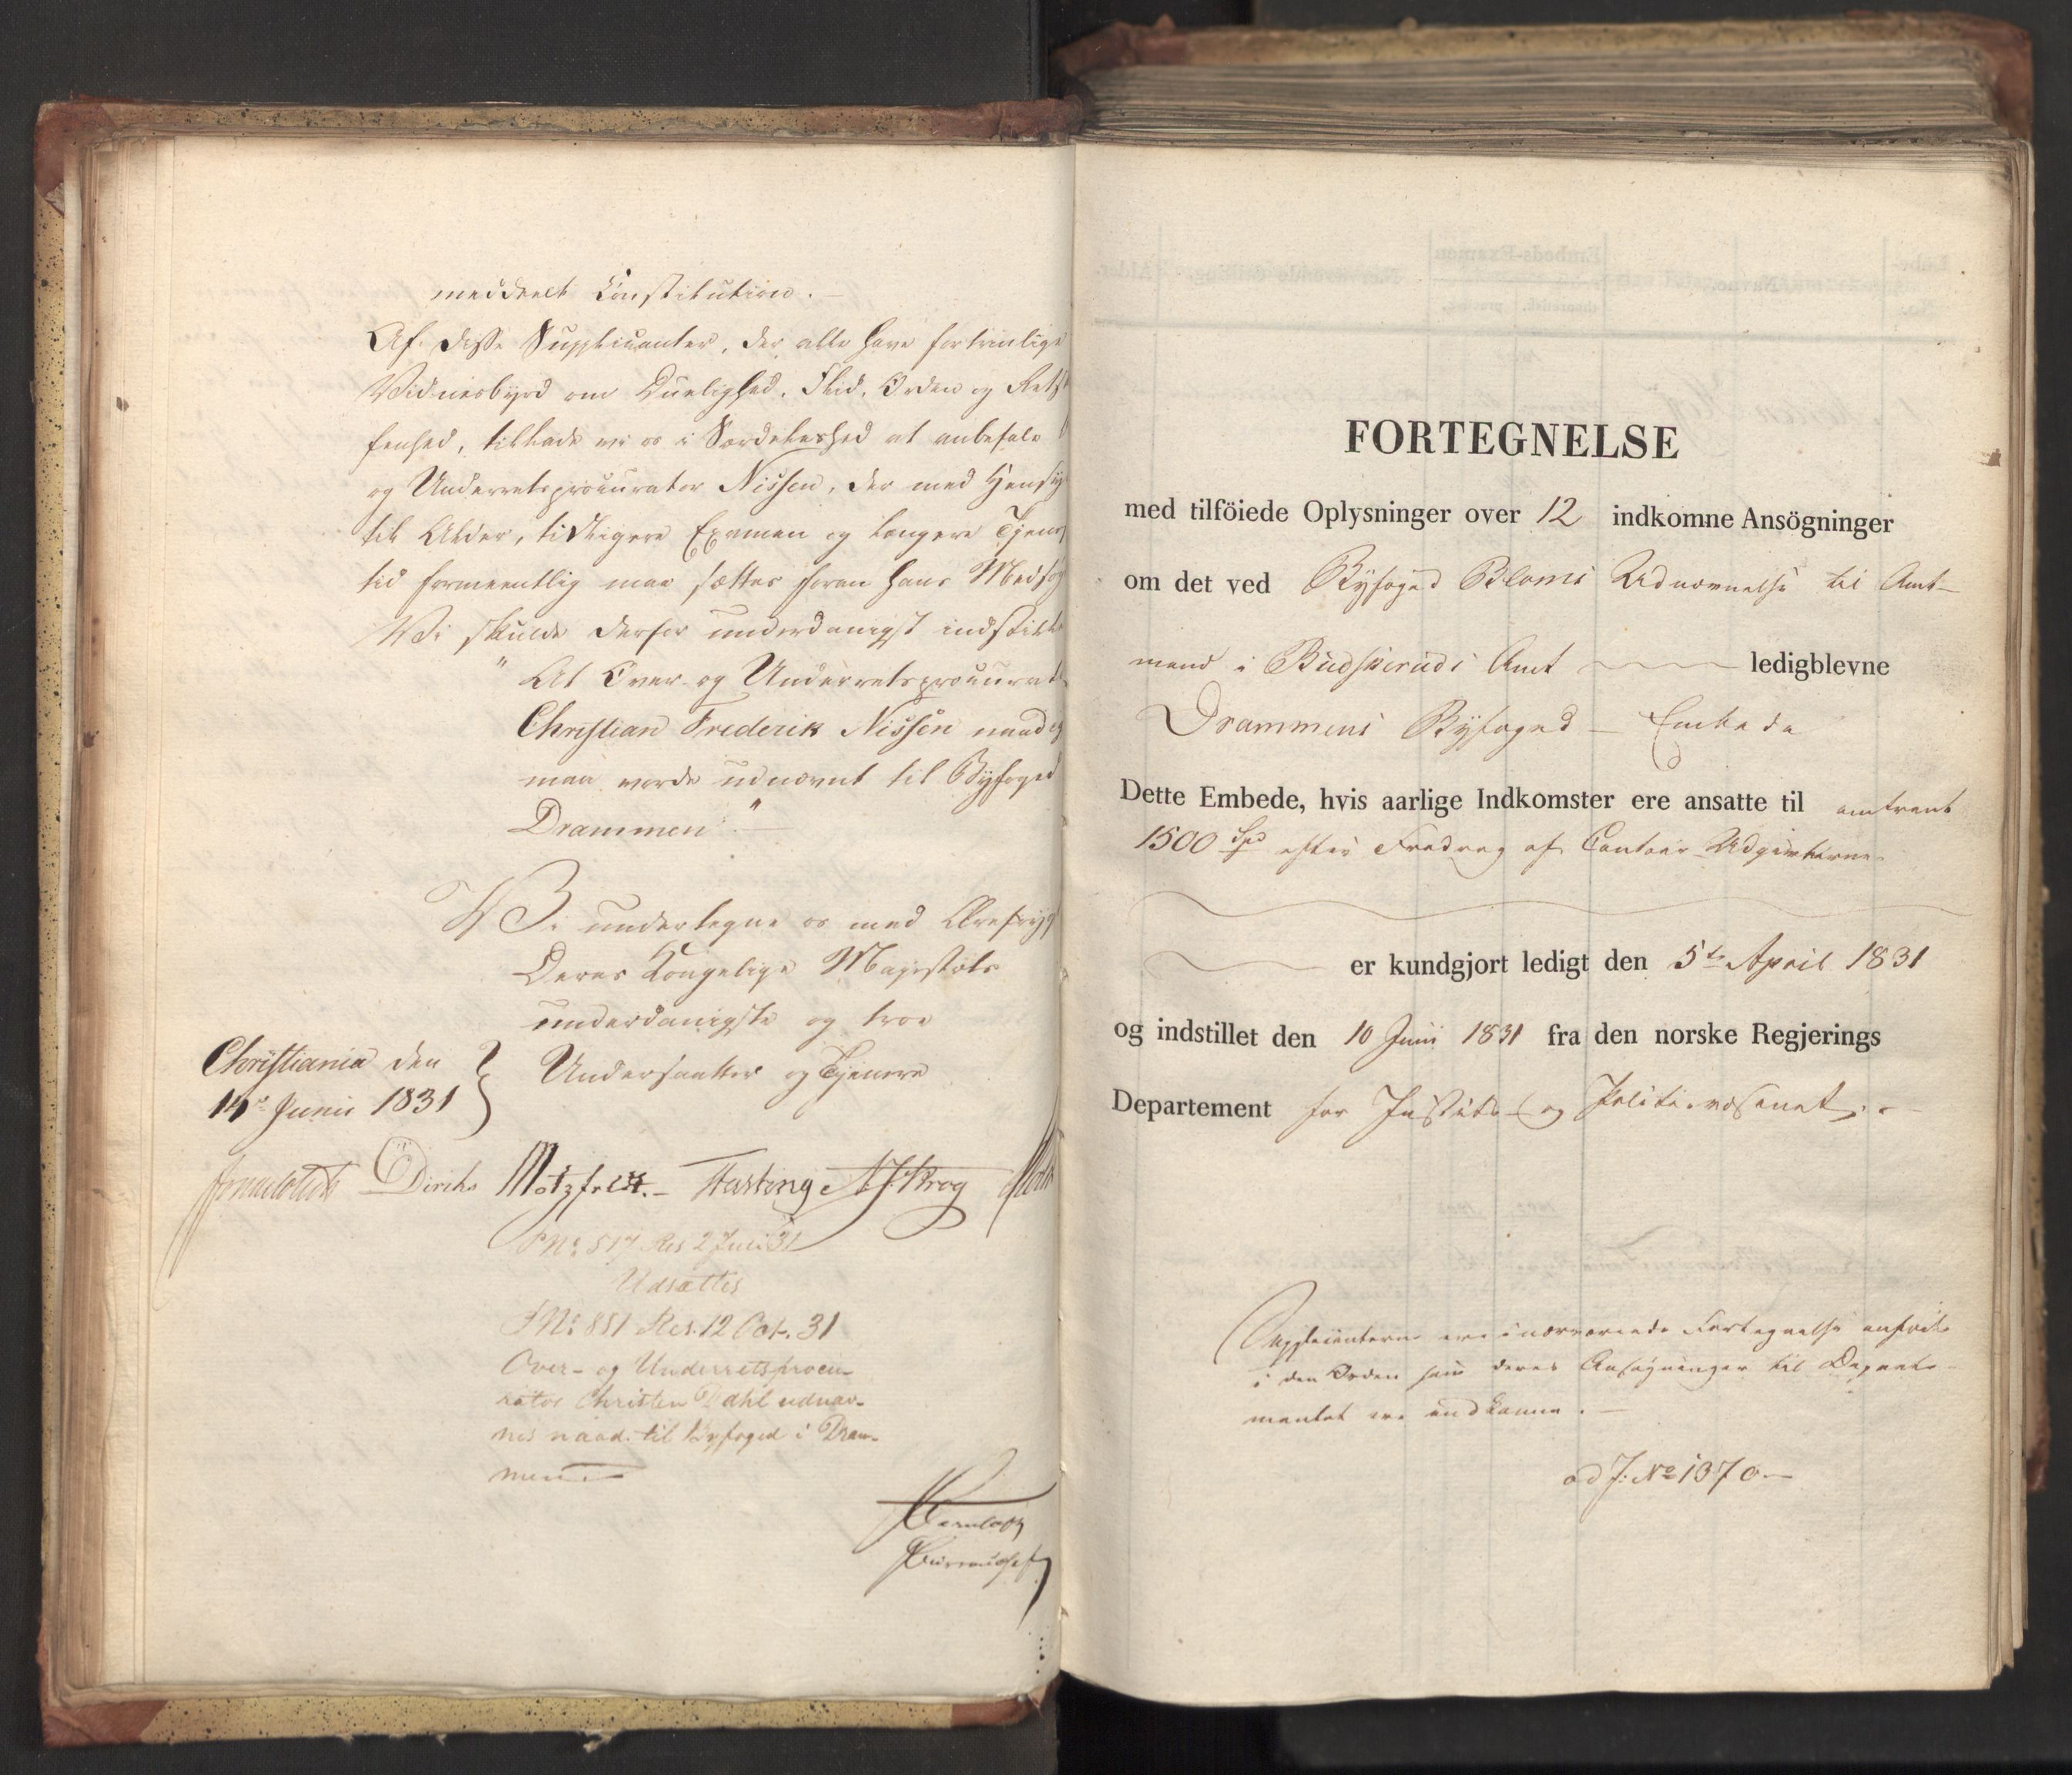 meddeelt Constitution. —
Af disse Supplicanter, der alle have fortrinlige
Vidnesbyrd om Duelighed, Flid, Orden og Retsk
fenhed, tillade vi os i Særdeleshed at anbefale
og Underretsprocurator Nissen, der med Hensy
til Alder, tidligere Examen og længere Tjenes
tid formeentlig maa sættes foran hans Medsø
Vi skulde derfor underdanigst indstille
"At Over- og Underretsprocurat
Christian Frederik Nissen naadig
maa vorde udnævnt til Byfoged
Drammen". —
Vi undertegne os med Ærefrygt
Deres Kongelige Majestæts
underdanigste og troe
Christiania den
14de Junii 1831
Undersaatter og Tjenere
Diriks Motzfeldt. — Fasting A. J. Krog
S No 517 Res 2 Juli 31
Udsættes
S No 881 Res. 12 Oct. 31
Over- og Underretsprocu-
rator Christen Dahl udnæv-
nes naad. til Byfoged i Dram-
men. —
Bureauchef
FORTEGNELSE
med tilföiede Oplysninger over 12 indkomne Ansögninger
om det ved Byfoged Bloms Udnævnelse til Amt-
mand i Budskeruds Amt ledigblevne
Drammens Byfoged — Embede
Dette Embede, hvis aarlige Indkomster ere ansatte til omtrent
1500 Spd efter Fradrag af Contoir Udgifterne
er kundgjort ledigt den 5te April 1831
og indstillet den 10 Juni 1831 fra den norske Regjerings
Departement for Justits- og Politievæsenet. —
Supplicanterne ere i nærværende Fortegnelse anført
i den Orden som deres Ansøgninger til Departe-
mentet ere indkomne. —
ad J: No 1370 —